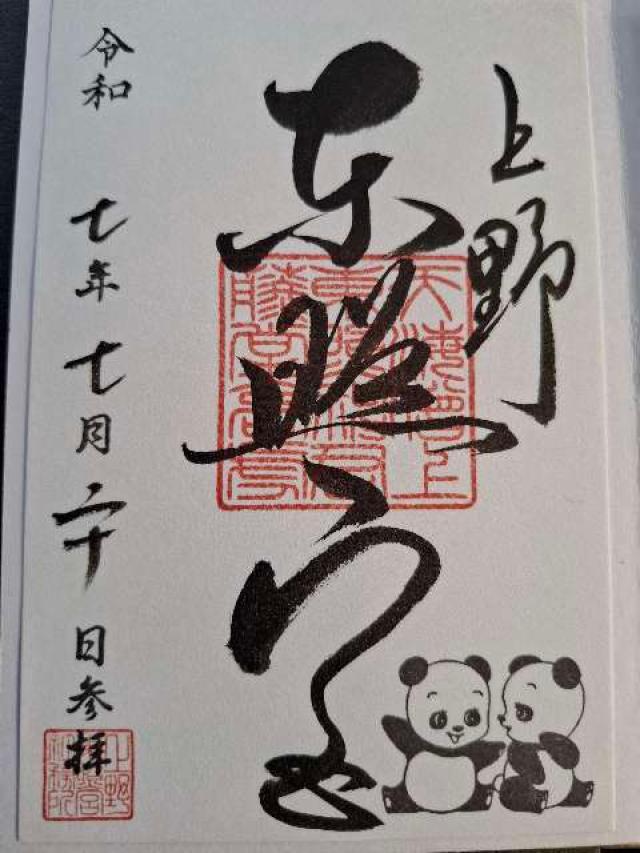 上野
東照宮
令和 七年 七月 二十 日参拝